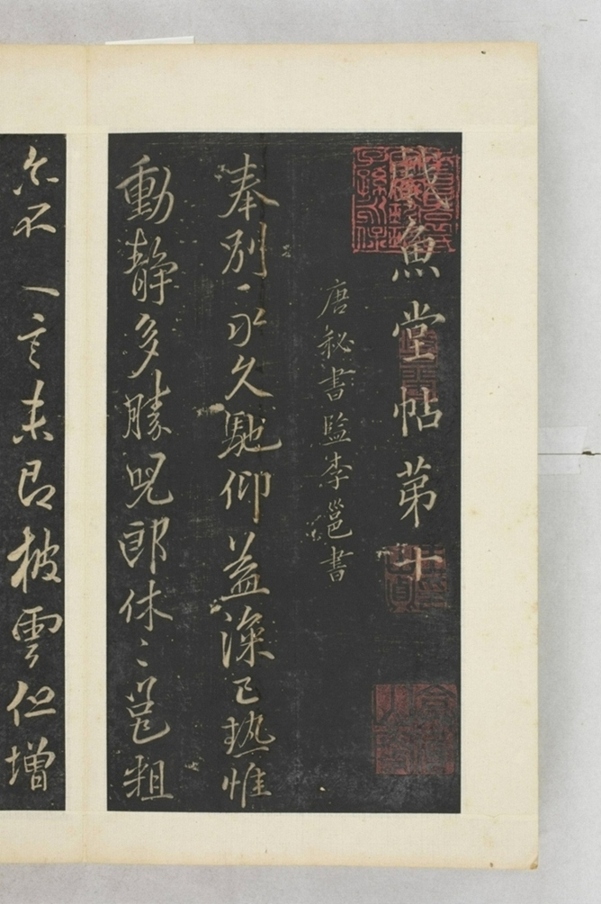 戲魚堂帖第十
唐秘書監李邕書
奉別永久馳仰益深已热惟
動靜多勝兒郎休〻邕粗
尒不一言未即披雲但增